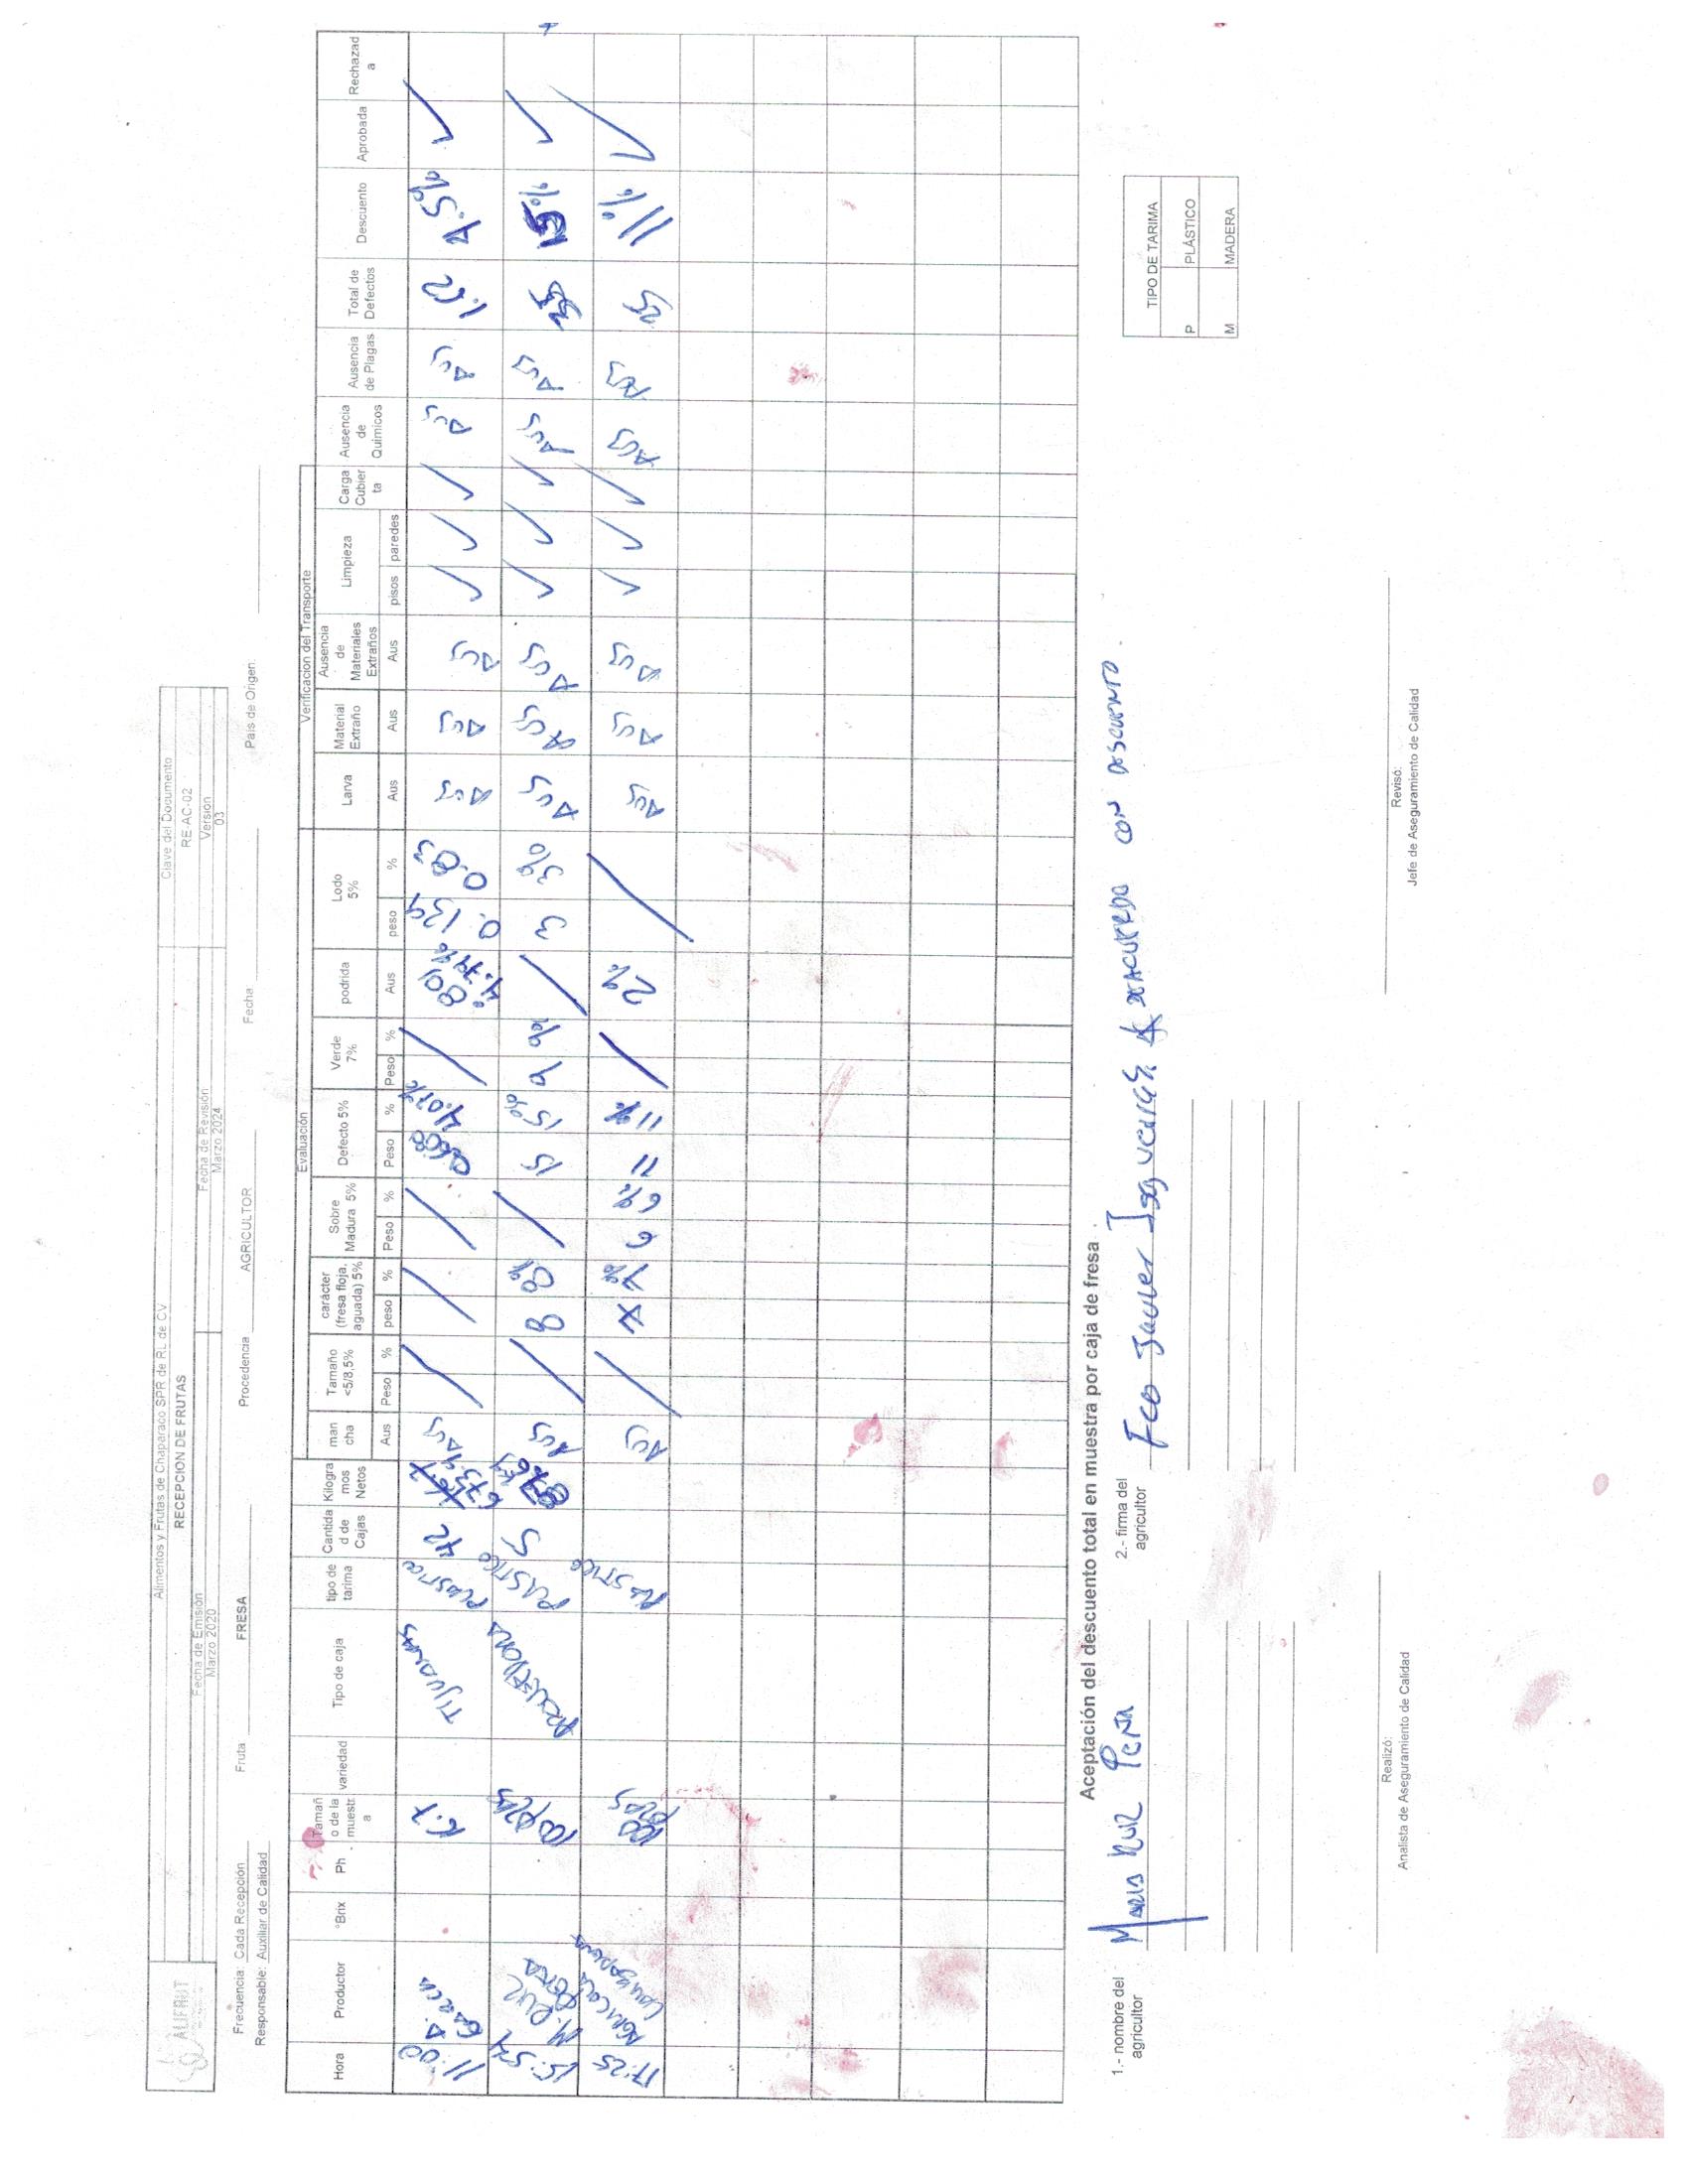 ALIFRUT
Alimentos y Frutas de Chaparaco SPR de RL de CV
RECEPCION DE FRUTAS
Fecha de Emisión
Marzo 2020
Fecha de Revisión
Marzo 2024
Clave del Documento
RE-AC-02
Versión
03
Frecuencia: Cada Recepción Fruta FRESA Procedencia AGRICULTOR Fecha País de Origen:
Responsable: Auxiliar de Calidad
Evaluación Verificacion del Transporte
Hora Productor °Brix Ph Tamaño de la muestra variedad Tipo de caja tipo de tarima Cantidad de Cajas Kilogramos Netos mancha Tamaño <5/8,5% carácter (fresa floja, aguada) 5% Sobre Madura 5% Defecto 5% Verde 7% podrida Lodo 5% Larva Material Extraño Ausencia de Materiales Extraños Limpieza Carga Cubierta Ausencia de Quimicos Ausencia de Plagas Total de Defectos Descuento Aprobada Rechazada
Aus Peso % peso % Peso % Peso % Peso % Aus peso % Aus Aus Aus pisos paredes
11:00 A. GARCIA 16.7 TIJUANAS PLASTICO 42 16.7 673.9 AUS / / / 0.680 4.07% / .801 4.79% 0.139 0.83 AUS AUS AUS ✓ ✓ ✓ AUS AUS 1.62 4.5% ✓
15:54 M. RUIZ PEÑA 100 PZAS PLASTICO 5 AUS / 8 8% / 15 15% 9 9% / 3 3% AUS AUS AUS ✓ ✓ ✓ AUS AUS 35 15% ✓
17:25 AGRICOLA 100 PZAS PLASTICO AUS / 7 7% 6 6% 11 11% / 2% / AUS AUS AUS ✓ ✓ ✓ AUS AUS 25 11% ✓
Aceptación del descuento total en muestra por caja de fresa
1.- nombre del agricultor MARIA RUIZ PEÑA
2.- firma del agricultor Fco Javier DEACUERDO CON DESCUENTO.
TIPO DE TARIMA
P PLÁSTICO
M MADERA
Realizó:
Analista de Aseguramiento de Calidad
Revisó:
Jefe de Aseguramiento de Calidad